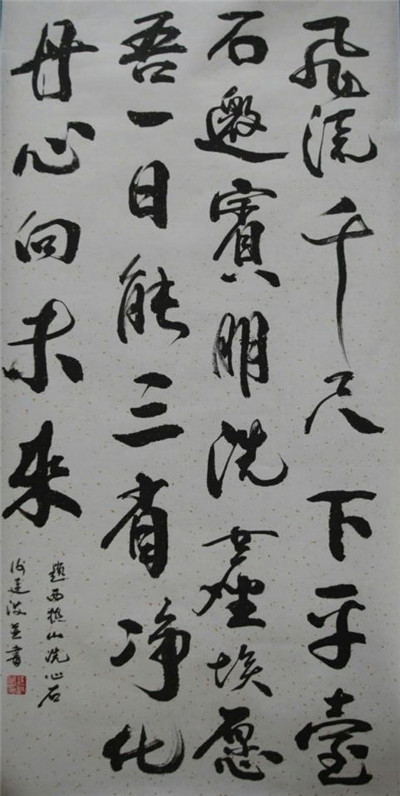 飛流千尺下平臺
石邀賓朋洗塵埃愿
吾一日能三省净化
丹心向未来
題西樵山洗心石
書